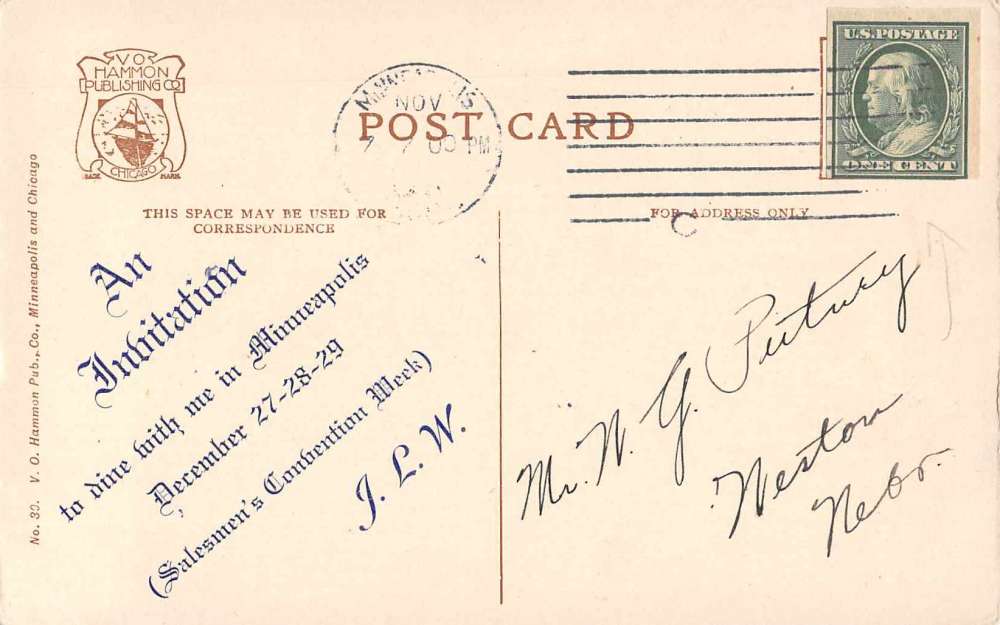 V O
HAMMON
PUBLISHING CO
CHICAGO
TRADE MARK
No. 39. V. O. Hammon Pub., Co., Minneapolis and Chicago
MINNEAPOLIS
NOV
7 7 00 PM
POST CARD
U.S. POSTAGE
ONE CENT
THIS SPACE MAY BE USED FOR
CORRESPONDENCE
FOR ADDRESS ONLY
An
Invitation
to dine with me in Minneapolis
December 27-28-29
(Salesmen's Convention Week)
J. L. W.
Mr. N. G. Putney
Weston
Nebr.